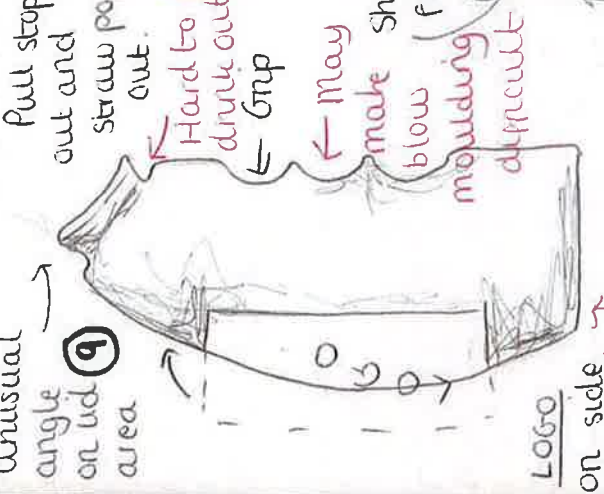 unusual
angle
on lid
area
9
Pull stop
out and
straw po
out.
Hard to
drink out
Grip
May
make
blow
moulding
difficult
Sh
f
LOGO
LOGO
on side